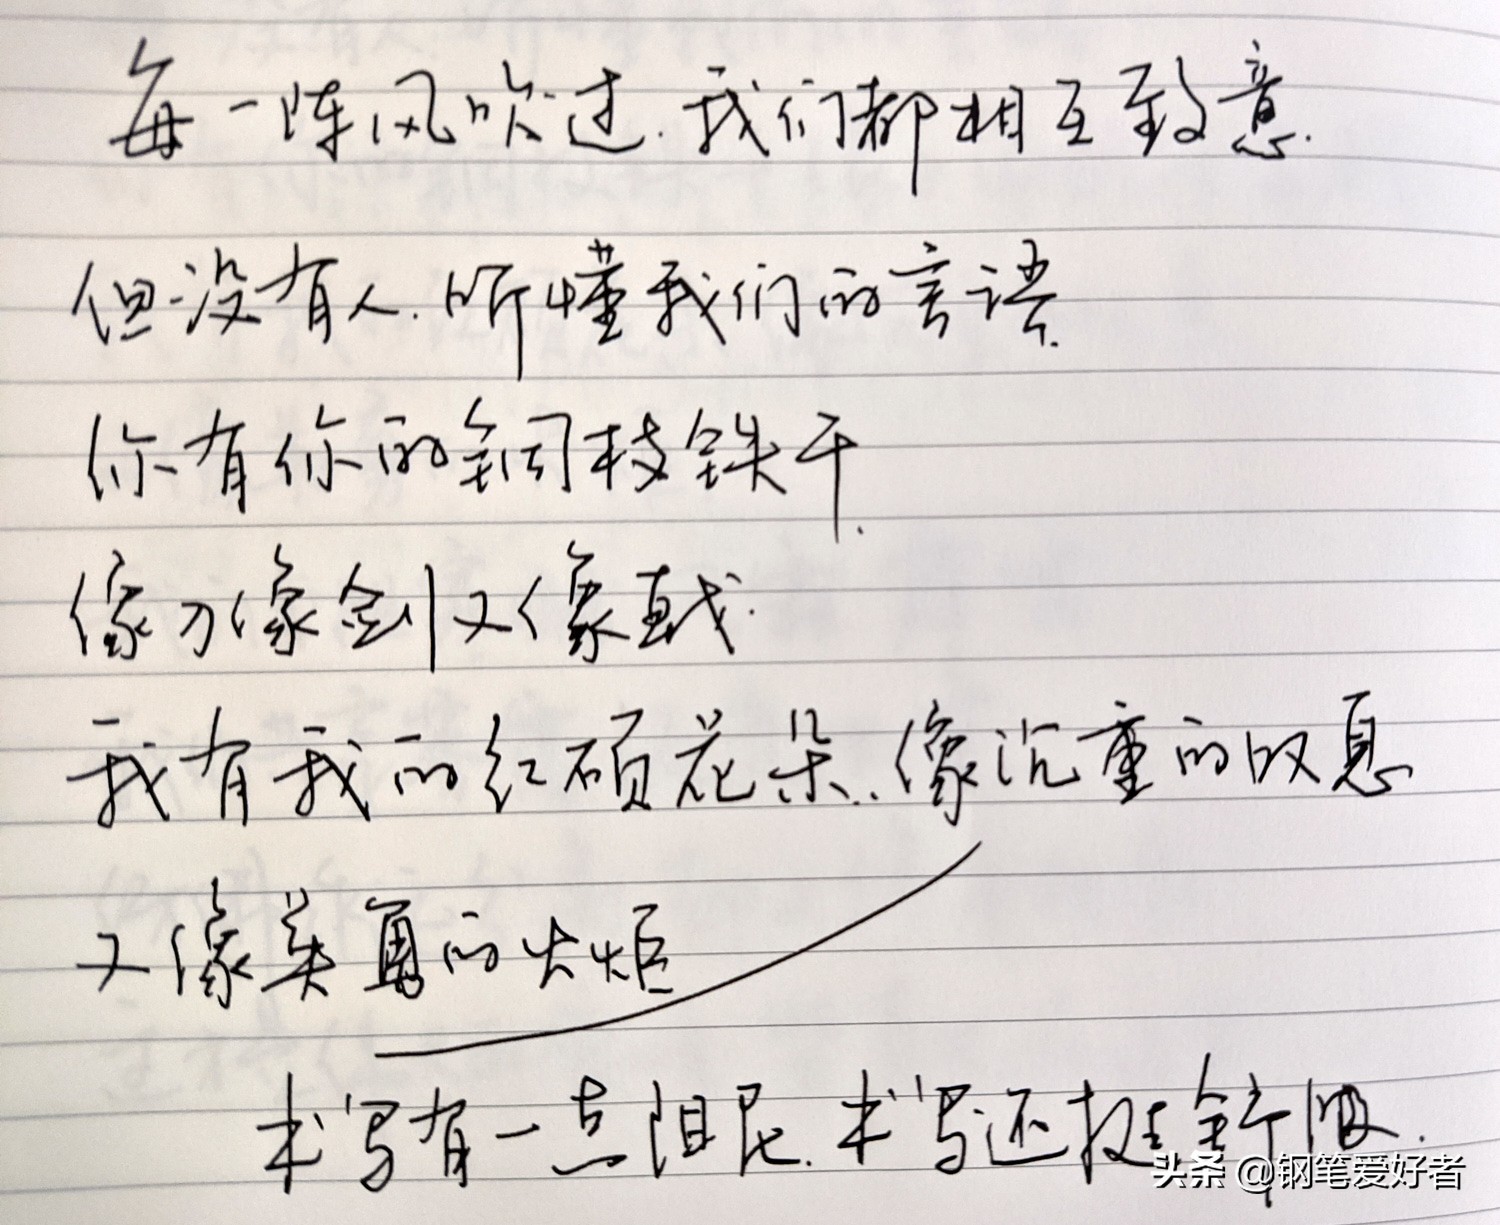 每一阵风吹过.我们都相互致意.
但没有人.听懂我们的言语.
你有你的铜枝铁干.
像刀像剑又像戟.
我有我的红硕花朵.像沉重的叹息
又像英勇的火炬
书写有一点阻尼.书写还挺舒服.
头条 @钢笔爱好者